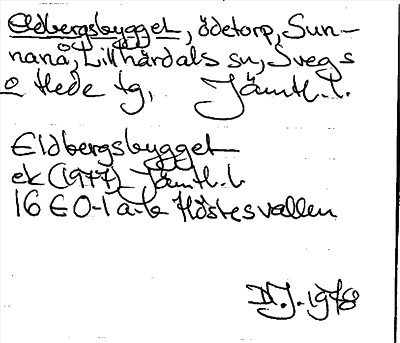 Eldbergsbygget, ödetorp, Sun-
nanå, Lillhärdals sn, Svegs
o Hede tg, Jämtl. l.
Eldbergsbygget
ek (1977) Jämtl. l.
16 E 0-1 a-b Höstesvallen
N.J. 1978